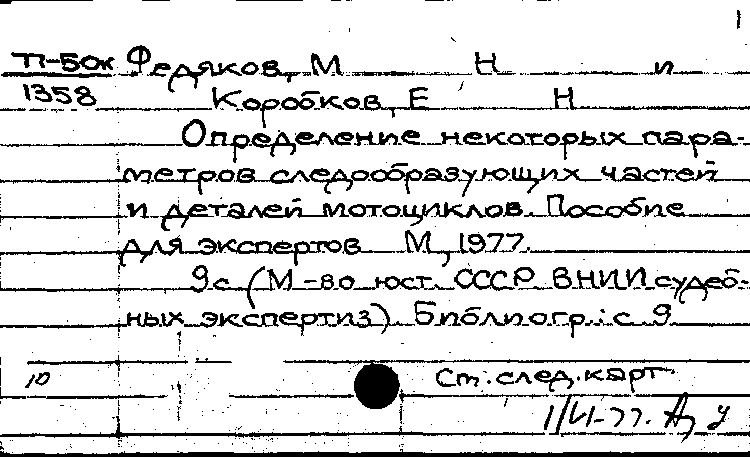 1
П-БОК Федяков, М Н и
1358 Коробков, Е Н
Определение некоторых пара-
метров следообразующих частей
и деталей мотоциклов. Пособие
для экспертов М, 1977.
9с (М-во юст. СССР ВНИИ судеб-
ных экспертиз). Библиогр.: с 9
10 См. след. карт
1/VI-77.